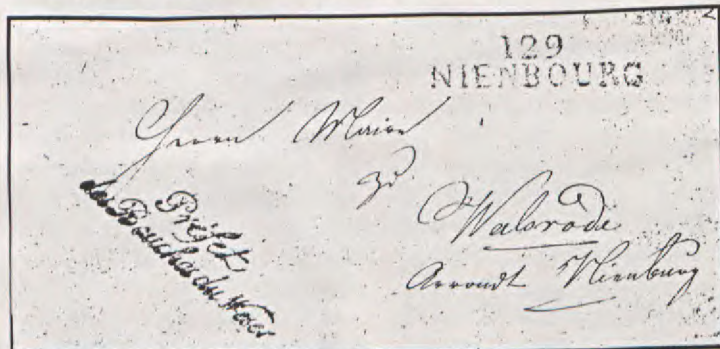 129
NIENBOURG
Herrn Maire
zu
Walsrode
Arrondt Nienburg
Préfet
des Bouches du Weser